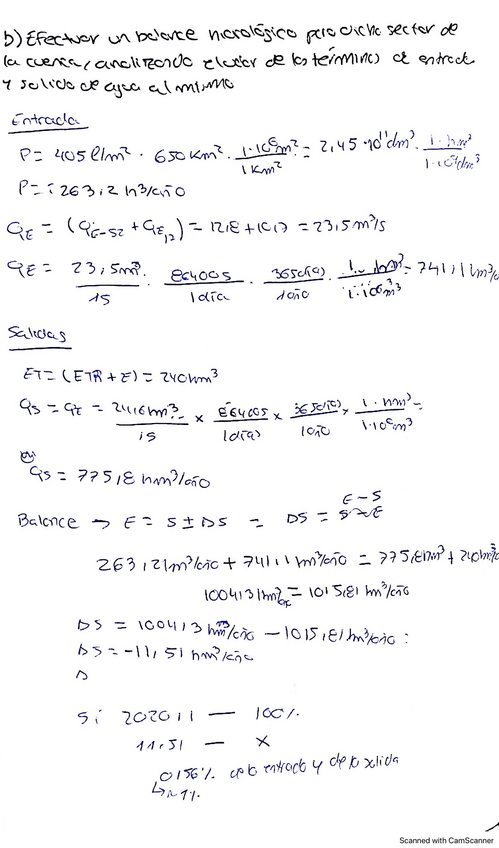 b) Efectuar un balance hidrológico para dicho sector de
la cuenca, analizando el valor de los términos de entrada
y salida de agua al mismo
Entrada
P = 405 l/m² · 650 km² · 1·10⁶m² / 1 km² = 2,45·10¹¹dm³ · 1·hm³ / 1·10⁹dm³
P = 263,2 h³/año
QE = (QE-52 + QE12) = 12,8 + 10,7 = 23,5 m³/s
QE = 23,5m³ / 1s · 86400s / 1día · 365días / 1año · 1·hm³ / 1·10⁶m³ = 741,1 hm³/a
Salidas
ET = (ETR + E) = 240 hm³
QS = QE = 24,6m³ / 1s × 86400s / 1día × 365días / 1año × 1·hm³ / 1·10⁶m³ =
QS = 775,8 hm³/año
E - S
Balance → E = S ± DS = DS =
263,2 hm³/año + 741,1 hm³/año = 775,8hm³ + 240 hm³/a
1004,3 hm³ = 1015,81 hm³/año
DS = 1004,3 hm³/año - 1015,81 hm³/año :
DS = -11,51 hm³/año
D
Si 2020,11 — 100%
11,51 — X
0,56% de la entrada y de la salida
↳ ~1%
Scanned with CamScanner